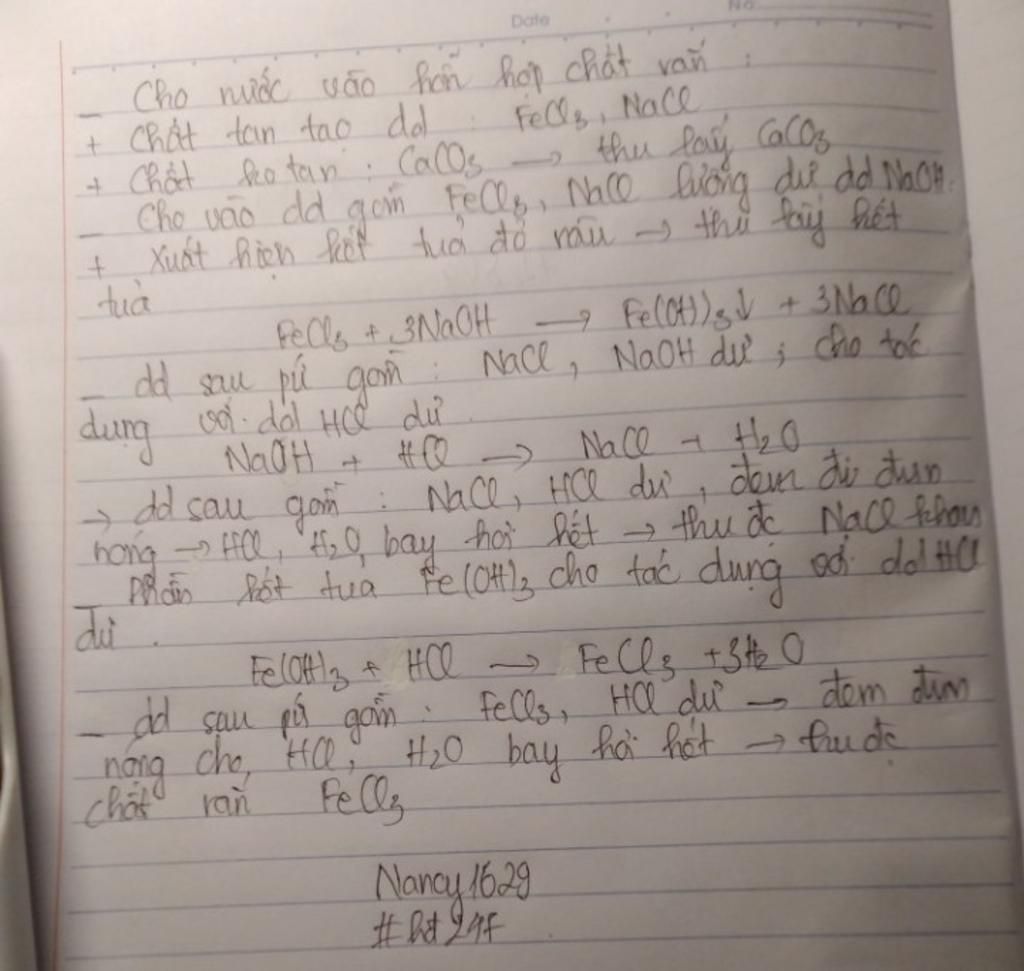 Date No
_ Cho nước vào hỗn hợp chất rắn :
+ Chất tan tạo dd : FeCl3, NaCl
+ Chất ko tan : CaCO3 → thu lấy CaCO3
_ Cho vào dd gồm FeCl3, NaCl lượng dư dd NaOH.
+ Xuất hiện kết tủa đỏ nâu → thu lấy kết
tủa
FeCl3 + 3NaOH → Fe(OH)3↓ + 3NaCl
_ dd sau pứ gồm : NaCl, NaOH dư ; cho tác
dụng với dd HCl dư
NaOH + HCl → NaCl + H2O
→ dd sau gồm : NaCl, HCl dư, đem đi đun
nóng → HCl, H2O bay hơi hết → thu đc NaCl khan
_ Phần kết tủa Fe(OH)3 cho tác dụng với dd HCl
dư .
Fe(OH)3 + HCl → FeCl3 + 3H2O
_ dd sau pứ gồm : FeCl3, HCl dư → đem đun
nóng cho HCl, H2O bay hơi hết → thu đc
chất rắn FeCl3
Nancy1629